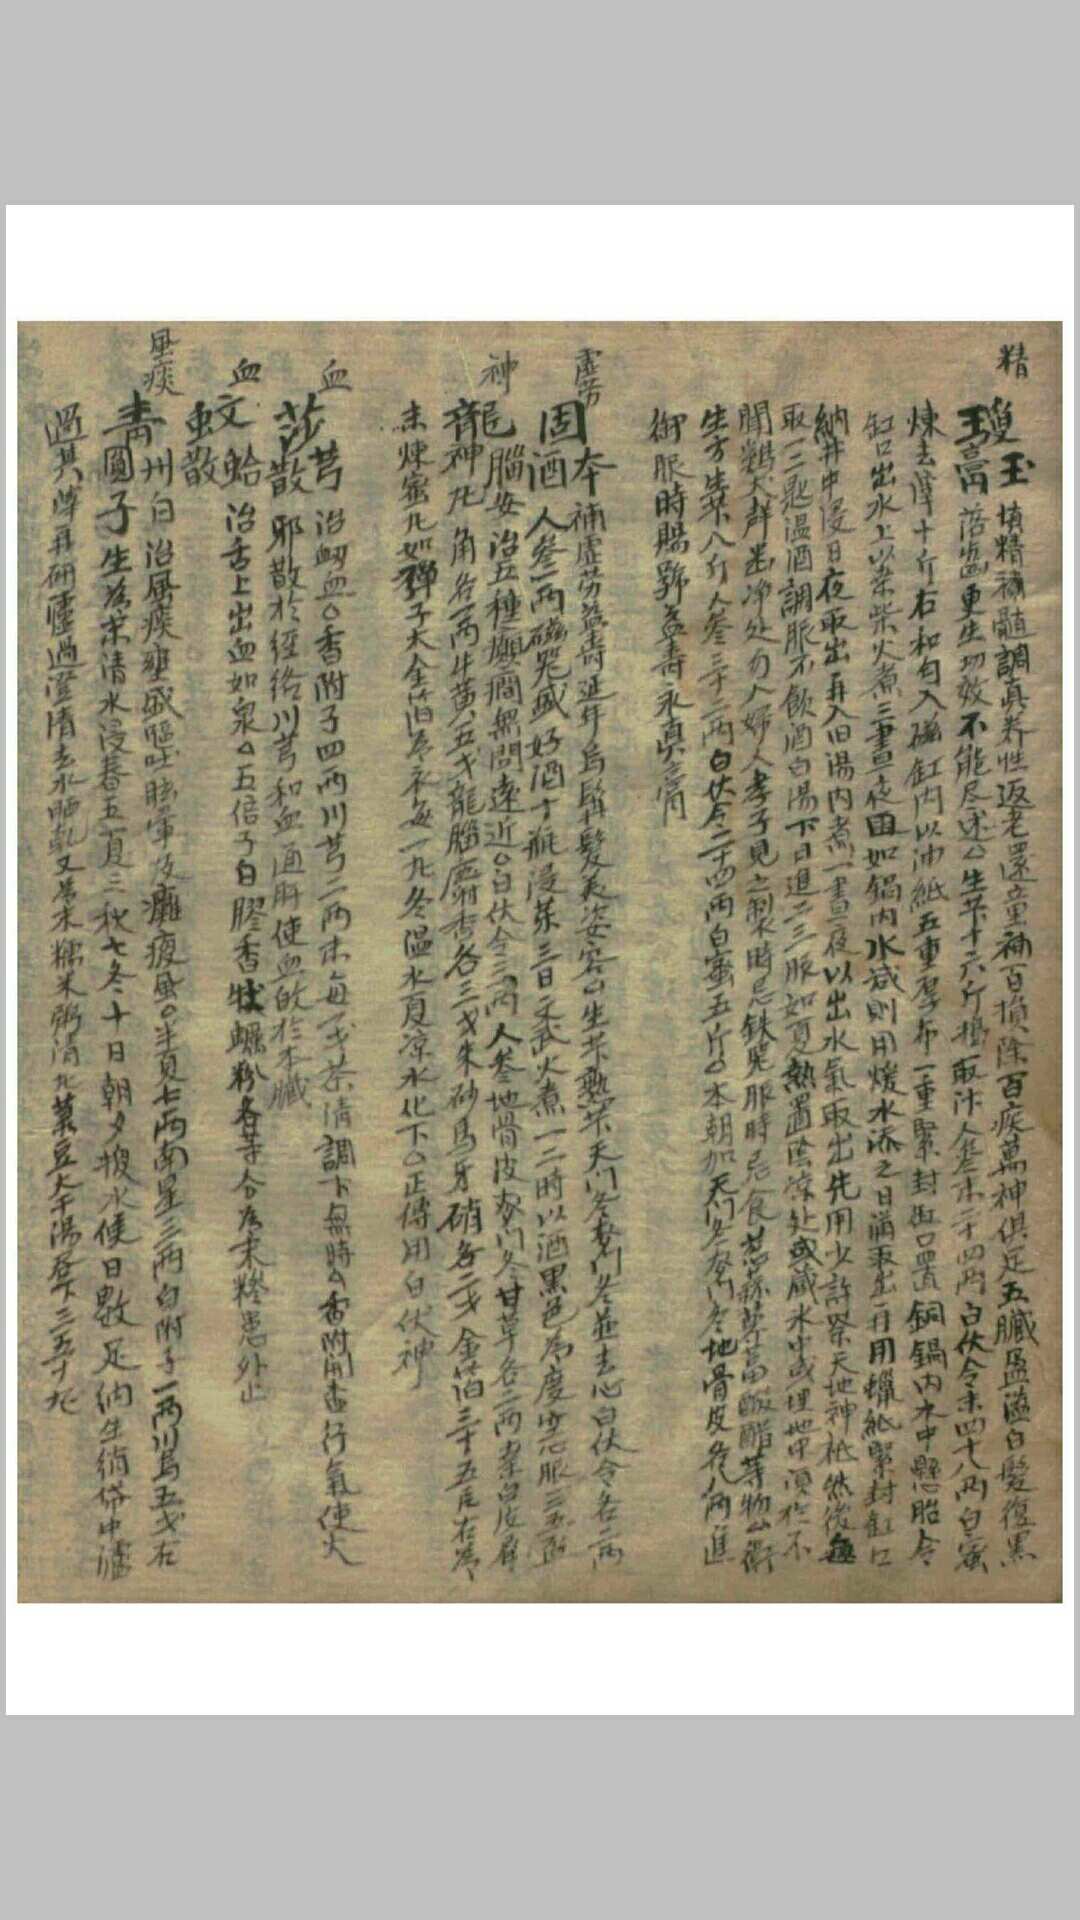 精
瓊玉膏 填精補髓調真养性返老還童補百損除百疾萬神俱足五臟盈溢白髮復黑
落齒更生功效不能尽述○生苄十六斤搗取汁人參末二十四兩白伏令末四十八兩白蜜
煉去滓十斤右和勻入磁缸內以油紙五重厚布一重緊封缸口置銅鍋內水中懸胎令
缸口出水上以桒柴火煮三晝夜如鍋內水减則用煖水添之日滿取出再用蠟紙緊封缸口
納井中浸一日夜取出再入旧湯內煮一晝夜以出水氣取出先用少許祭天地神祇然後每
取一二匙溫酒調服不飲酒白湯下日進二三服如夏熱置陰凉处或藏水中或埋地中須於不
聞鷄犬声幽净处勿人婦人孝子見之製時忌鉄器服時忌食葱蒜蘿葍酸醋等物△衛
生方生苄八斤人參三十二兩白伏令二十四兩白蜜五斤○本朝加天門冬麥門冬地骨皮各八兩進
御服時賜號益壽永真膏
虛劳
固本酒 補虛劳益壽延年烏鬚髮美姿容○生苄熟苄天門冬麥門冬並去心白伏令各二兩
人參一兩磁器盛好酒十瓶浸藥三日文武火煮一二時以酒黑色為度空心服三五盃
神
龍腦安神丸 治五種癲癎無問遠近○白伏令三兩人參地骨皮麥門冬甘草各二兩桒白皮犀
角各一兩牛黃五戔龍腦麝香各三戔朱砂馬牙硝各二戔金箔三十五片右為
末煉蜜丸如弾子大金箔為衣每一丸冬溫水夏凉水化下○正傳用白伏神
血
莎芎散 治衂血○香附子四兩川芎二兩末每二戔茶清調下無時△香附開盍行氣使火
邪散於經絡川芎和血通肝使血歸於本臟
血
蚊蛤散 治舌上出血如泉△五倍子白膠香牡蠣粉各等分為末糝患处止
風痰
青州白圓子 治風痰壅盛嘔吐眩暈及癱瘓風○半夏七兩南星三兩白附子二兩川烏五戔右
生為末清水浸春五夏三秋七冬十日朝夕換水候日數足納生絹俗中濾
過其滓再研濾過澄清去水晒乾又為末糯米粥清丸菉豆大干湯吞下三五十丸